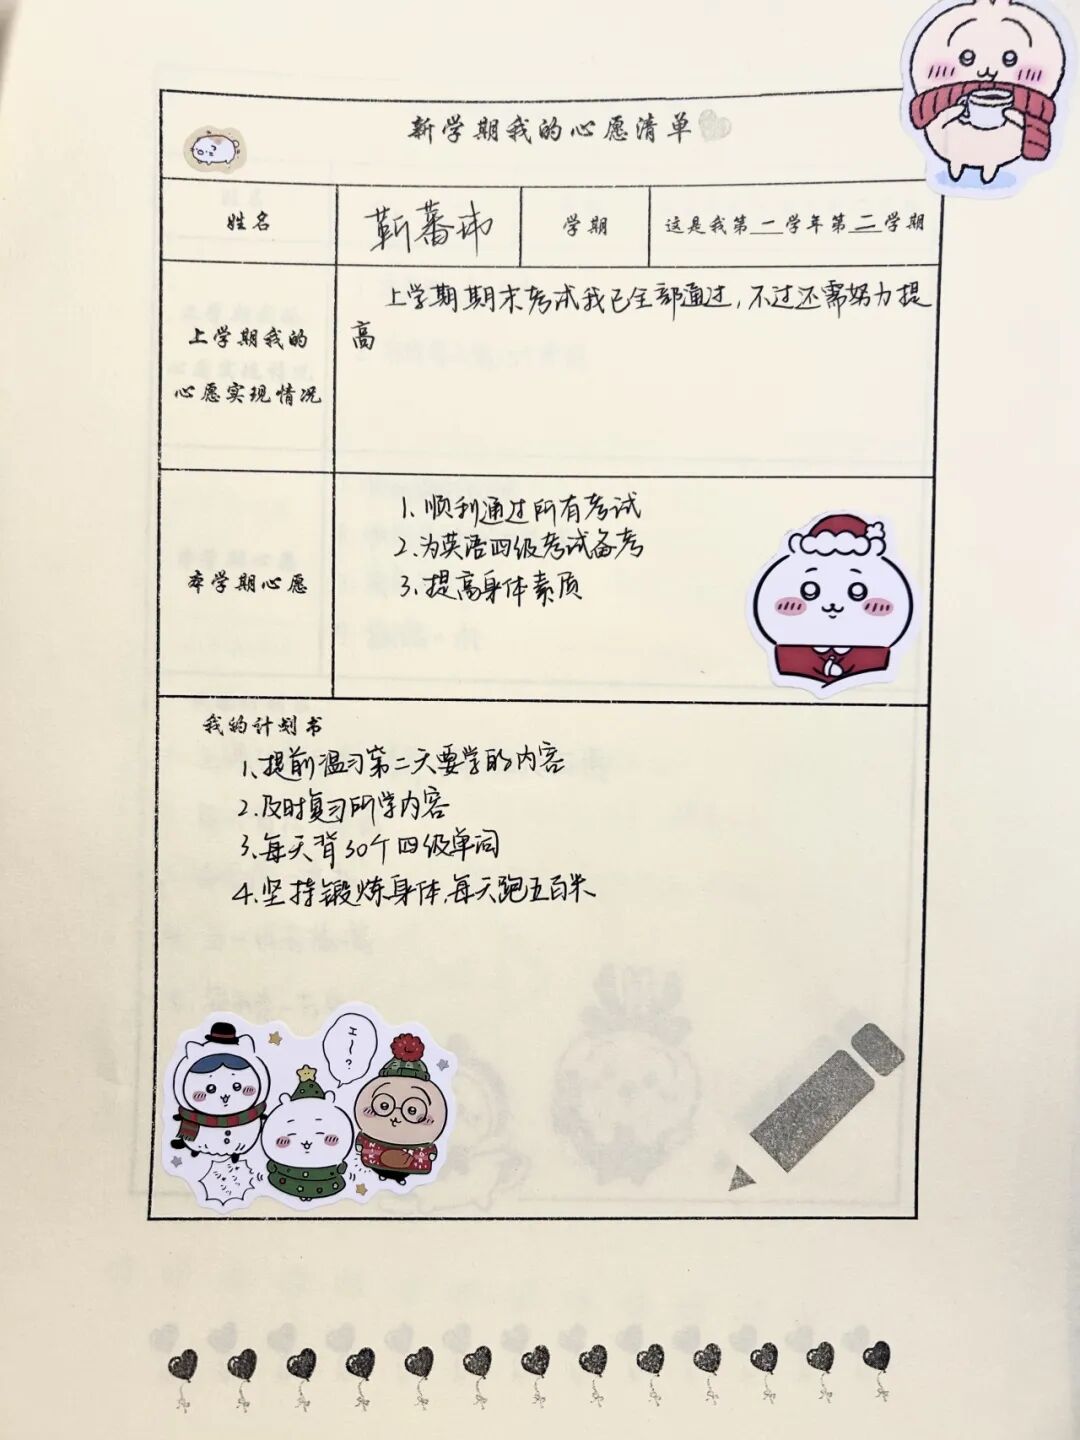 新学期我的心愿清单
姓名
靳蕃玮
学期
这是我第一学年第二学期
上学期我的
心愿实现情况
上学期期末考试我已全部通过,不过还需努力提
高
本学期心愿
1.顺利通过所有考试
2.为英语四级考试备考
3.提高身体素质
我的计划书
1.提前温习第二天要学的内容
2.及时复习所学内容
3.每天背30个四级单词
4.坚持锻炼身体,每天跑五百米
エ〜?